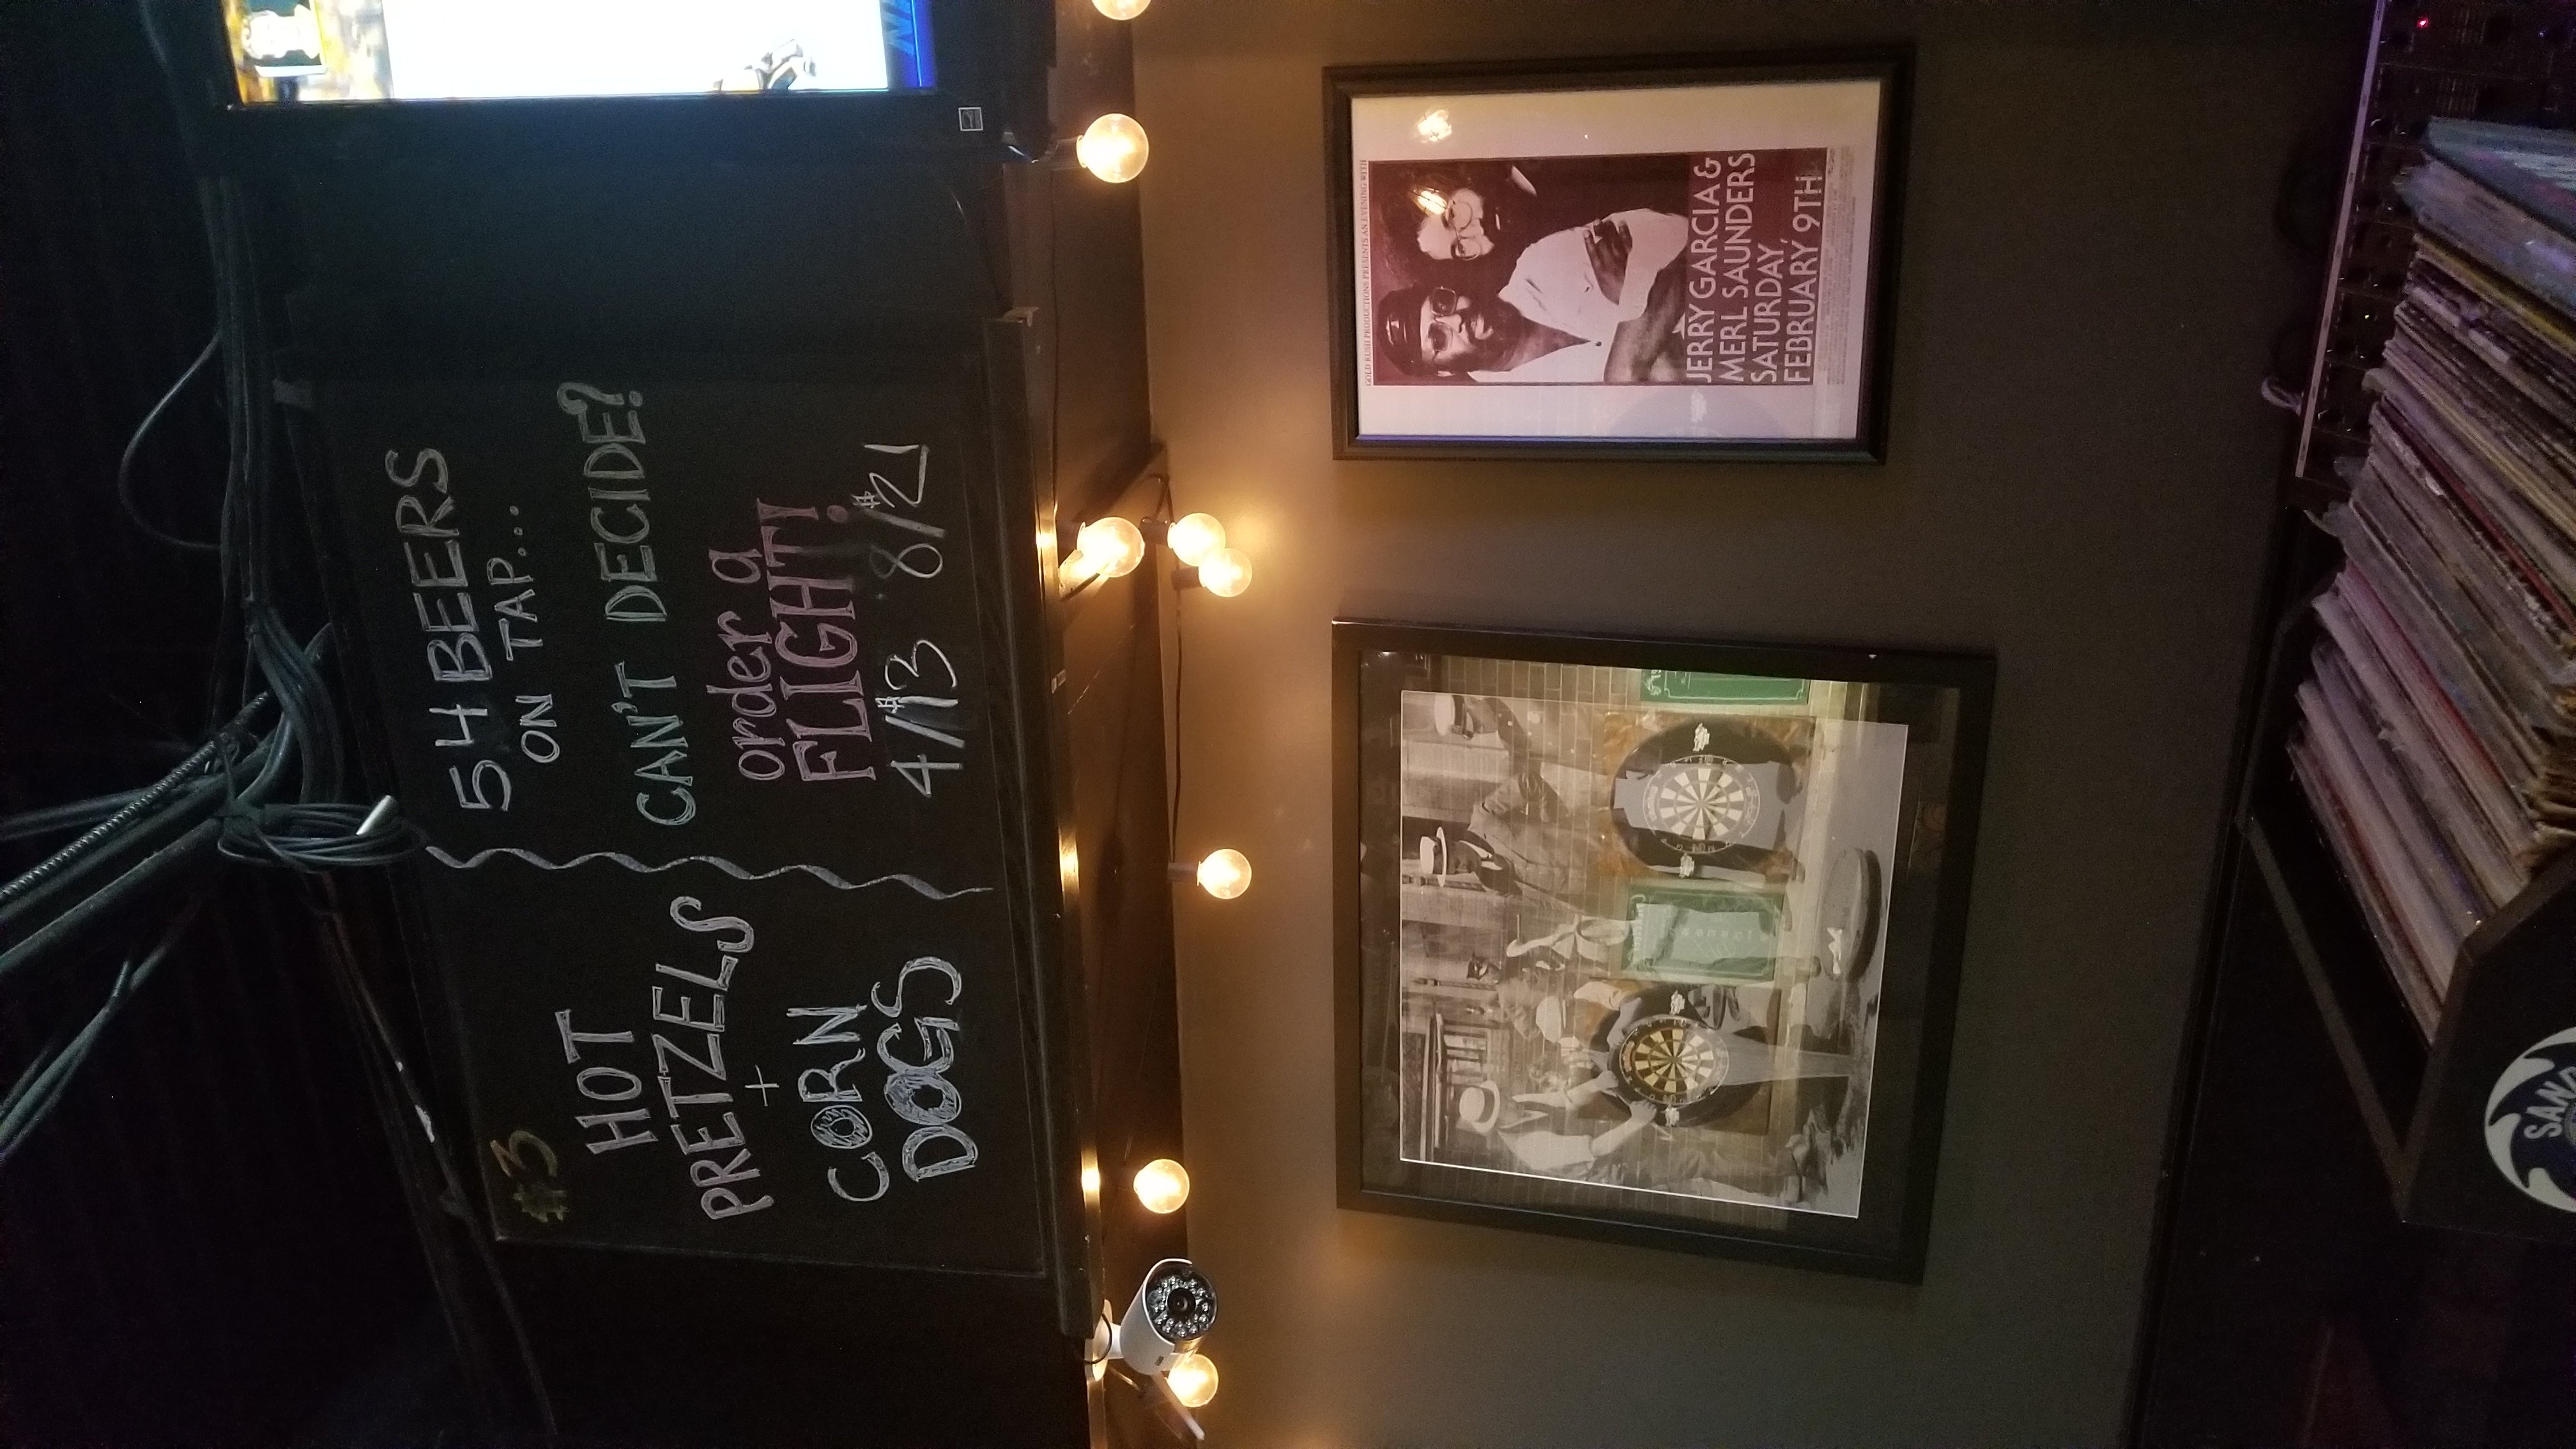 #3
HOT
PRETZELS
+
CORN
DOGS
54 BEERS
ON TAP...
CAN'T DECIDE?
order a
FLIGHT!
4/$13 8/$21
GOLD RUSH PRODUCTIONS PRESENTS AN EVENING WITH
JERRY GARCIA &
MERL SAUNDERS
SATURDAY,
FEBRUARY 9TH